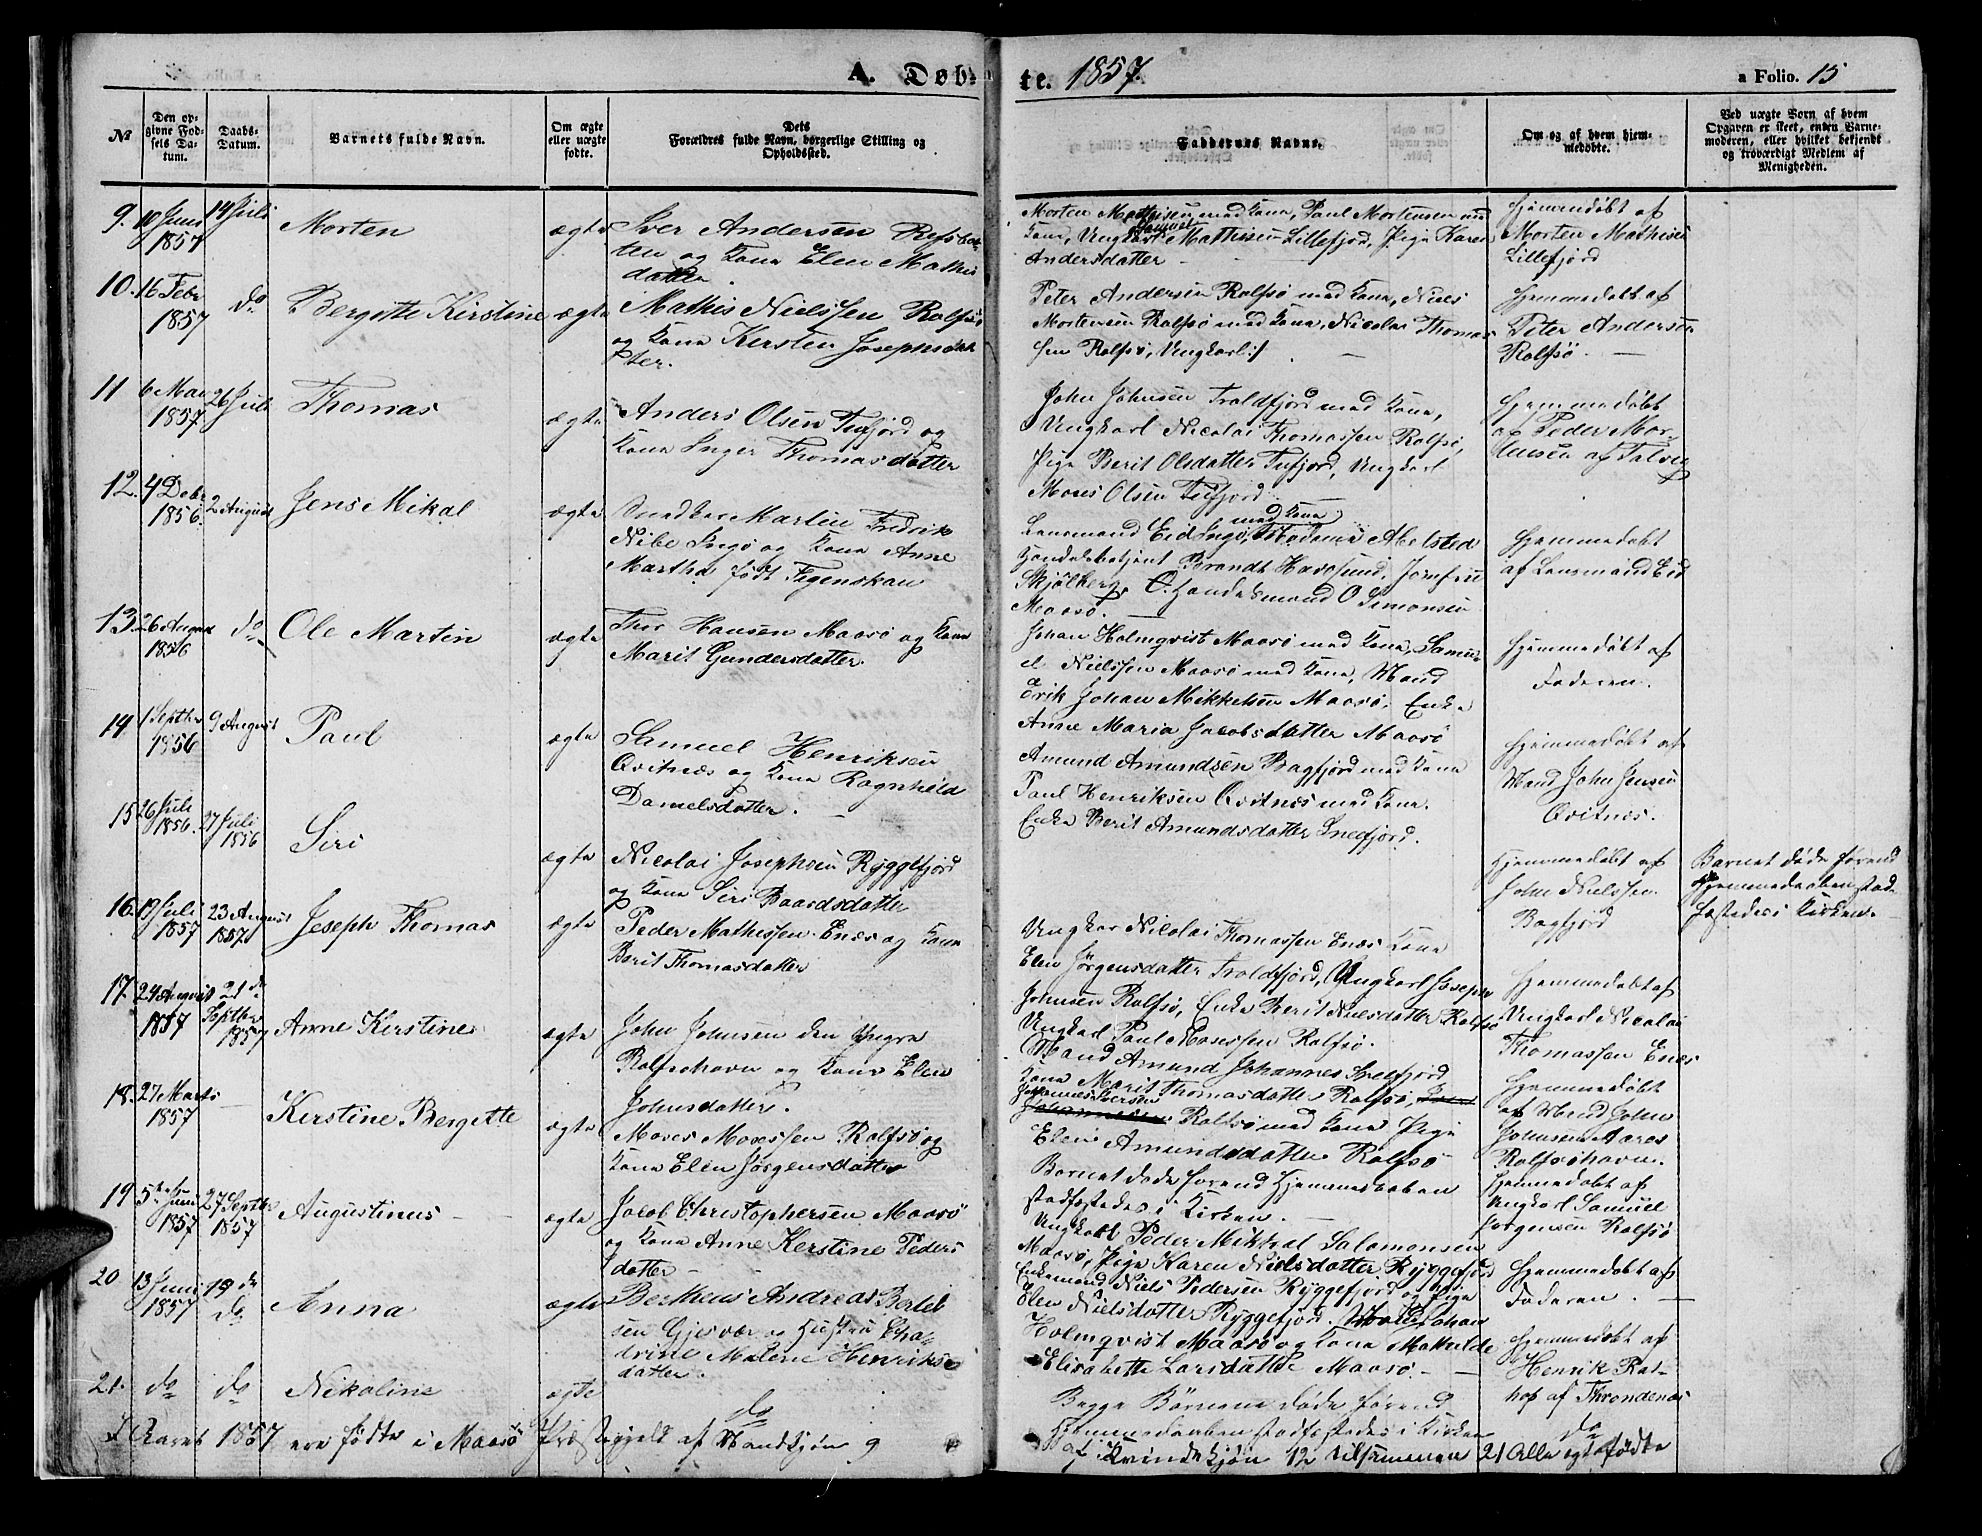 A. Døb-
te. 1857.
a Folio. 15
No
Den op-
givne Fød-
sels Da-
tum.
Daabs-
Datum.
Barnets fulde Navn.
Om ægte
eller uægte
fødte.
Dets
Forældres fulde Navn, borgerlige Stilling og
Opholdssted.
Faddernes Navne.
Om og af hvem hjem-
medøbt.
Ved uægte Børn af hvem
Opgaven er skeet, enten Barne-
moderen, eller hvilket bekjendt
og troværdigt Medlem af
Menigheden.
9. 10 Juni 1857
14 Juli
Morten
ægte
Iver Andersen Refsbot-
ten og Kone Elen Mathis
datter.
Morten Mathisen med Kone, Paul Mortensen med
Kone, Ungkarl Samuel Mathisen Lillefjord, Pige Karen
Andersdatter
Hjemmedøbt af
Morten Mathisen
Lillefjord
10. 16 Febr 1857
do
Bergitte Kirstine
ægte
Mathis Nielssen Rolfsø
og Kone Kersten Josephsdat
ter.
Peter Andersen Rolfsø med Kone, Niels
Mortensen Rolfsø med Kone, Nicolai Thomas-
sen Rolfsø, Ungkarl
Hjemmedøbt af
Peter Andersen
Rolfsø.
11 6 Mai 1857
26 Juli
Thomas
ægte
Anders Olsen Tufjord og
Kone Inger Thomasdatter
John Johnsen Troldfjord med Kone,
Ungkarl Nicolai Thomassen Rolfsø,
Pige Berit Olsdatter Tufjord, Ungkarl
Moses Olsen Tufjord
Hjemmedøbt
af Peder Mor-
tensen af Talvig
12. 4 Debr 1856.
2 August
Jens Mikal
ægte
Snedker Martin Fredrik
Nibe Ingø og Kone Anne
Martha født Figenskau
Lensmand Eid Ingø med Kone, Madame Abelsted
Handelsbetjent Brandt Havøsund, Jomfru
Skjølberg, Handelsmand O Simonsen
Maasø.
Hjemmedøbt
af Lensmand Eid
13. 26 August 1856
do
Ole Martin
ægte
Thor Hansen Maasø og Kone
Marit Gundersdatter.
Johan Holmqvist Maasø med Kone, Samu-
el Nielssen Maasø med Kone, Mand
Erik Johan Mikkelsen Maasø, Enke
Anne Maria Jacobsdatter Maasø
Hjemmedøbt af
Faderen.
14 1 Septbr 1856
9 August
Paul
ægte
Samuel Henriksen
Qvitnæs og Kone Ragnheld
Danielsdatter.
Amund Amundsen Bagfjord med Kone
Paul Henriksen Qvitnæs med Kone.
Enke Berit Amundsdatter Snefjord.
Hjemmedøbt af
Mand John Jensen
Qvitnæs.
15 26 Juli 1856.
27 Juli 1856
Siri
ægte
Nicolai Josephsen Ryggefjord
og Kone Siri Baardsdatter
Hjemmedøbt af
John Nielssen
Bagfjord
Barnet døde førend
Hjemmedaaben stad-
fæstedes i Kirken.
16. 19 Juli 1857
23 August 1857
Joseph Thomas
ægte
Peder Mathissen Enæs og Kone
Berit Thomasdatter
Ungkar Nicolai Thomassen Enæs Kone
Elen Jørgensdatter Troldfjord, Ungkarl Joseph
Johnsen Rolfsø, Enke Berit Nielsdatter Rolfsø
Ungkarl Paul Mosessen Rolfsø.
Hjemmedøbt af
Ungkarl Nicolai
Thomassen Enæs
17. 24 August 1857
21 de Septbr 1857
Anne Kerstine
ægte
John Johnsen den Yngre
Rolfsøhavn og Kone Elen
Johnsdatter.
Mand Amund Johannes Snefjord
Kone Marit Thomasdatter Rolfsø,
Rolfsø med Kone Pige
Elen Amundsdatter Rolfsø
Hjemmedøbt
af Mand John
Johnsen Aares
Rolfsøhavn.
18. 27 Marts 1857
Kerstine Bergitte
ægte
Moses Mosessen Rolfsø og
Kone Elen Jørgensdatter
Barnet døde førend Hjemmedaaben
stadfæstedes i Kirken.
Hjemmedøbt af
Ungkarl Samuel
Jørgensen Rolfsø
19 5te Juni 1857
27 Septbr 1857
Augustinus
ægte
Jacob Christophersen Maasø
og Kone Anne Kerstine Peders
datter
Ungkarl Peder Mikkal Salomonsen
Maasø, Pige Karen Nielsdatter Ryggefjord
Enkemand Niels Pedersen Ryggefjord og Pige
Elen Nielsdatter Ryggefjord. Johan
Holmqvist Maasø og Kone Mathilde
Elisabette Larsdatter Maasø.
Hjemmedøbt af
Faderen.
20 13 Juni 1857
do
Anna
ægte
Bertheus Andreas Bertel
sen Gjesvær og Hustru Cha-
trine Malene Henriks
datter.
Begge Børnene døde førend
Hjemmedaaben stadfæstedes i Kirken
Hjemmedøbt af
Henrik Rat-
hop af Throndenæs
21. do
do
Nikoline
ægte
do
do
I Aaret 1857 ere fødte i Maasø Præstegjeld af Mandkjøn 9
af Kvindekjøn 12 tilsammen 21 Alle ægtefødte